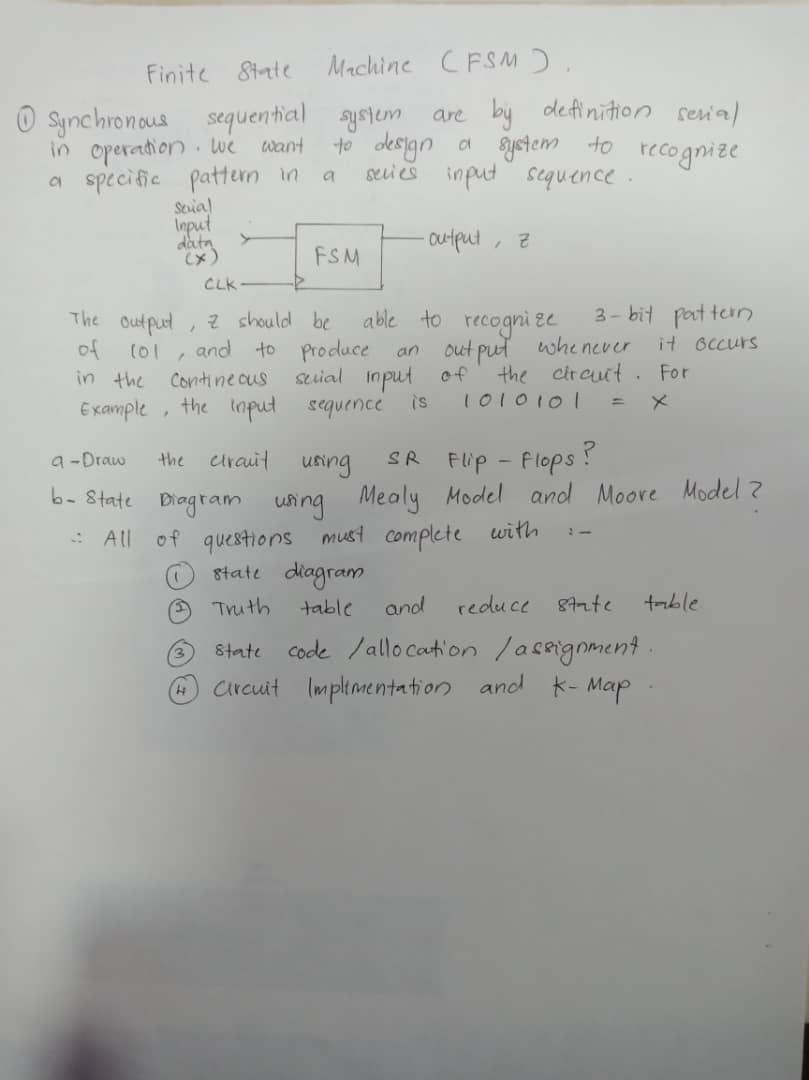 Finite State Machine (FSM).
① Synchronous sequential system are by definition serial
in operation. We want to design a system to recognize
a specific pattern in a series input sequence.
Serial
Input
data
(x)
FSM
output, z
CLK
The output, z should be able to recognize 3-bit pattern
of 101, and to produce an output whenever it occurs
in the Contineous serial input of the circuit. For
Example, the input sequence is 1010101 = X
a-Draw the circuit using SR Flip-Flops?
b-State Diagram using Mealy Model and Moore Model?
∴ All of questions must complete with :-
① state diagram
② Truth table and reduce state table
③ State code /allocation /assignment.
④ Circuit Implimentation and K-Map.